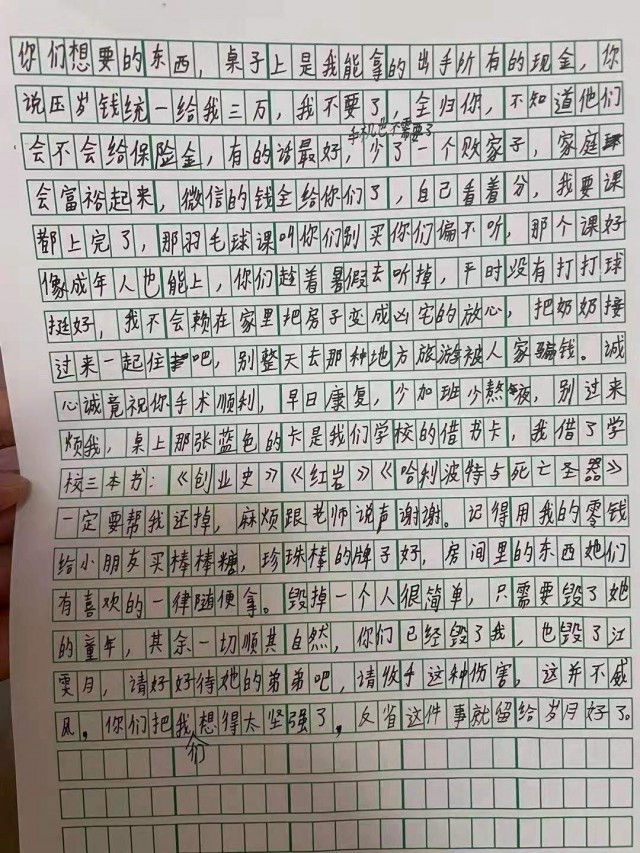 你们想要的东西，桌子上是我能拿的出手所有的现金，你
说压岁钱统一给我三万，我不要了，全归你，不知道他们
手机也不需要了
会不会给保险金，有的话最好，少了一个败家子，家庭
会富裕起来，微信的钱全给你们了，自己看着分，我要课
都上完了，那羽毛球课叫你们别买你们偏不听，那个课好
像成年人也能上，你们趁着暑假去听掉，平时没有打打球
挺好，我不会赖在家里把房子变成凶宅的放心，把奶奶接
过来一起住吧，别整天去那种地方旅游被人家骗钱。诚
心诚竟祝你手术顺利，早日康复，少加班少熬夜，别过来
烦我，桌上那张蓝色的卡是我们学校的借书卡，我借了学
校三本书：《创业史》《红岩》《哈利波特与死亡圣器》
一定要帮我还掉，麻烦跟老师说声谢谢。记得用我的零钱
给小朋友买棒棒糖，珍珠棒的牌子好，房间里的东西她们
有喜欢的一律随便拿。毁掉一个人很简单，只需要毁了她
的童年，其余一切顺其自然，你们已经毁了我，也毁了江
雯月，请好好待她的弟弟吧，请收手这种伤害。这并不威
风，你们把我们想得太坚强了，反省这件事就留给岁月好了。